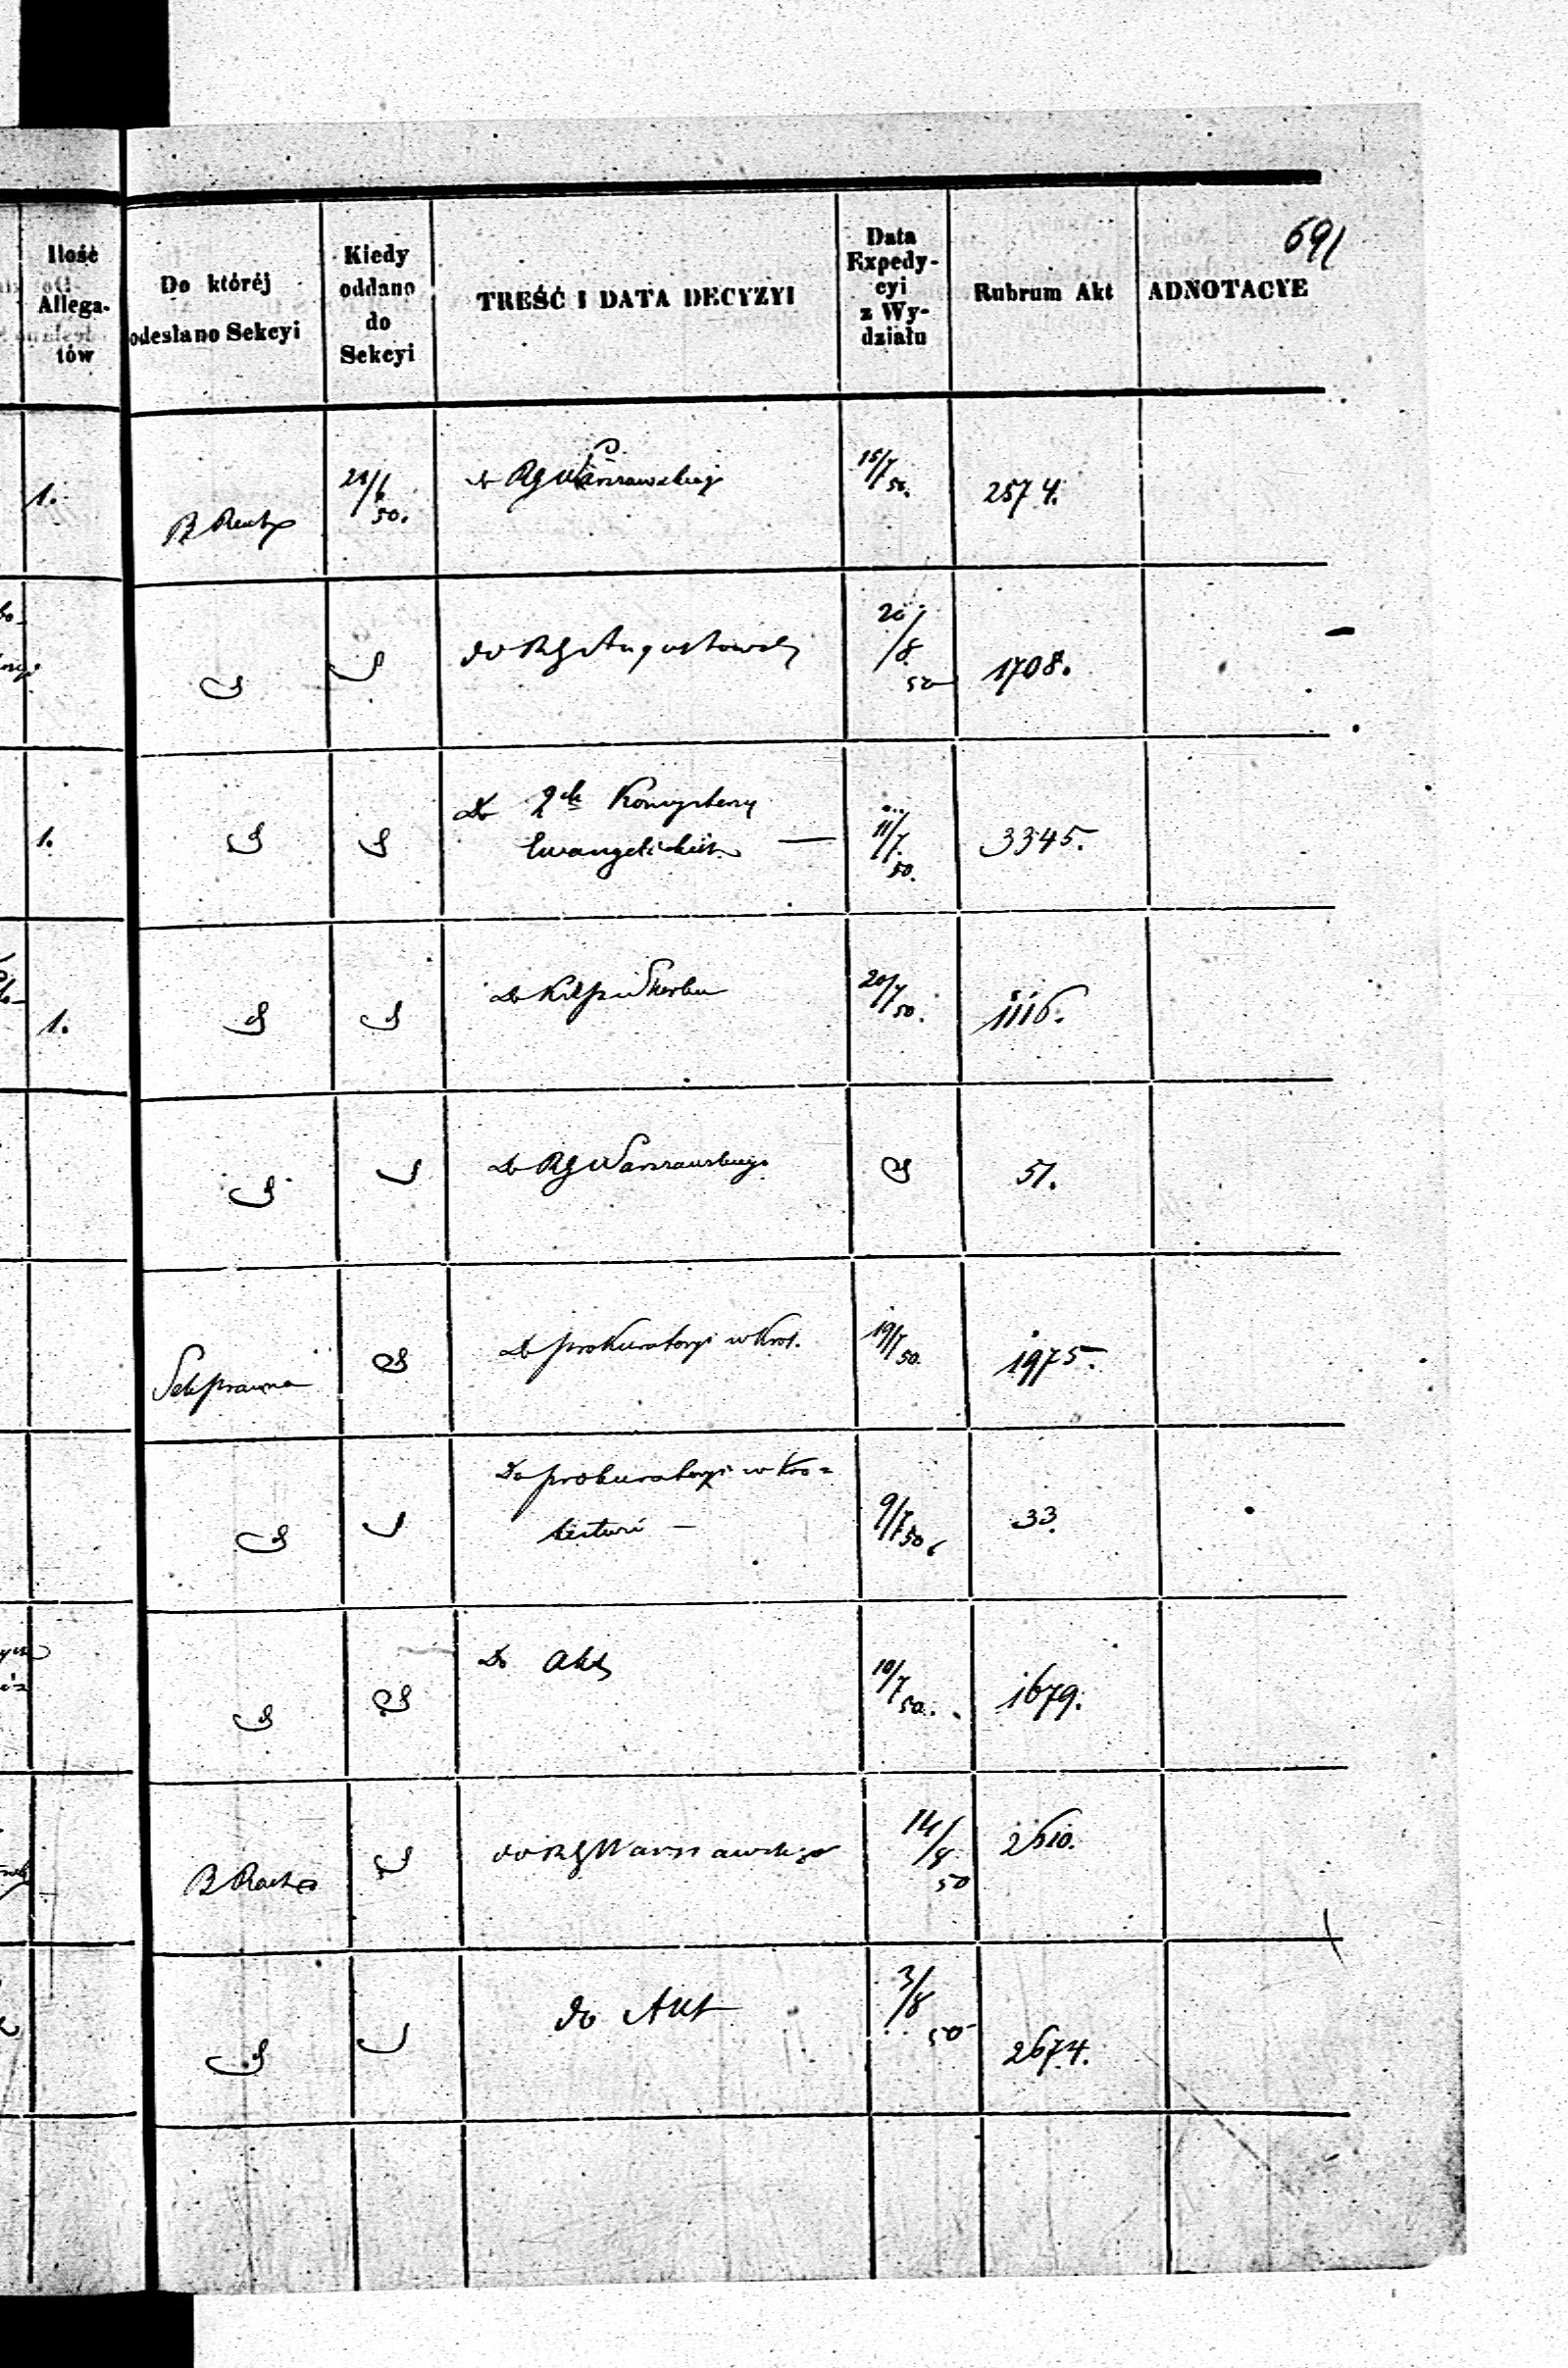 691
Ilość
Allega-
tów
Do któréj
odesłano Sekcyi
Kiedy
oddano
do
Sekcyi
TREŚĆ I DATA DECYZYI
Data
Expedy-
cyi
z Wy-
działu
Rubrum Akt
ADNOTACYE
1.
21/6 50.
do RG Warszawskiego
15/7 50.
2574.
do RG Augustowsk
20/8 50
1708.
1.
Do
Ewangelickich
11/7 50.
3345.
1.
Do Skarbu
20/7 50.
1116.
Do RG Warszawskiego
51.
Sek prawna
Do prokuratoryi w Krol.
19/7 50.
1975.
Do prokuratoryi w Kró=
lestwie —
9/7 50.
33.
Do Akt
10/7 50.
1679.
do RG Warszawskiego
14/8 50
2610.
do Akt
3/8 50
2674.